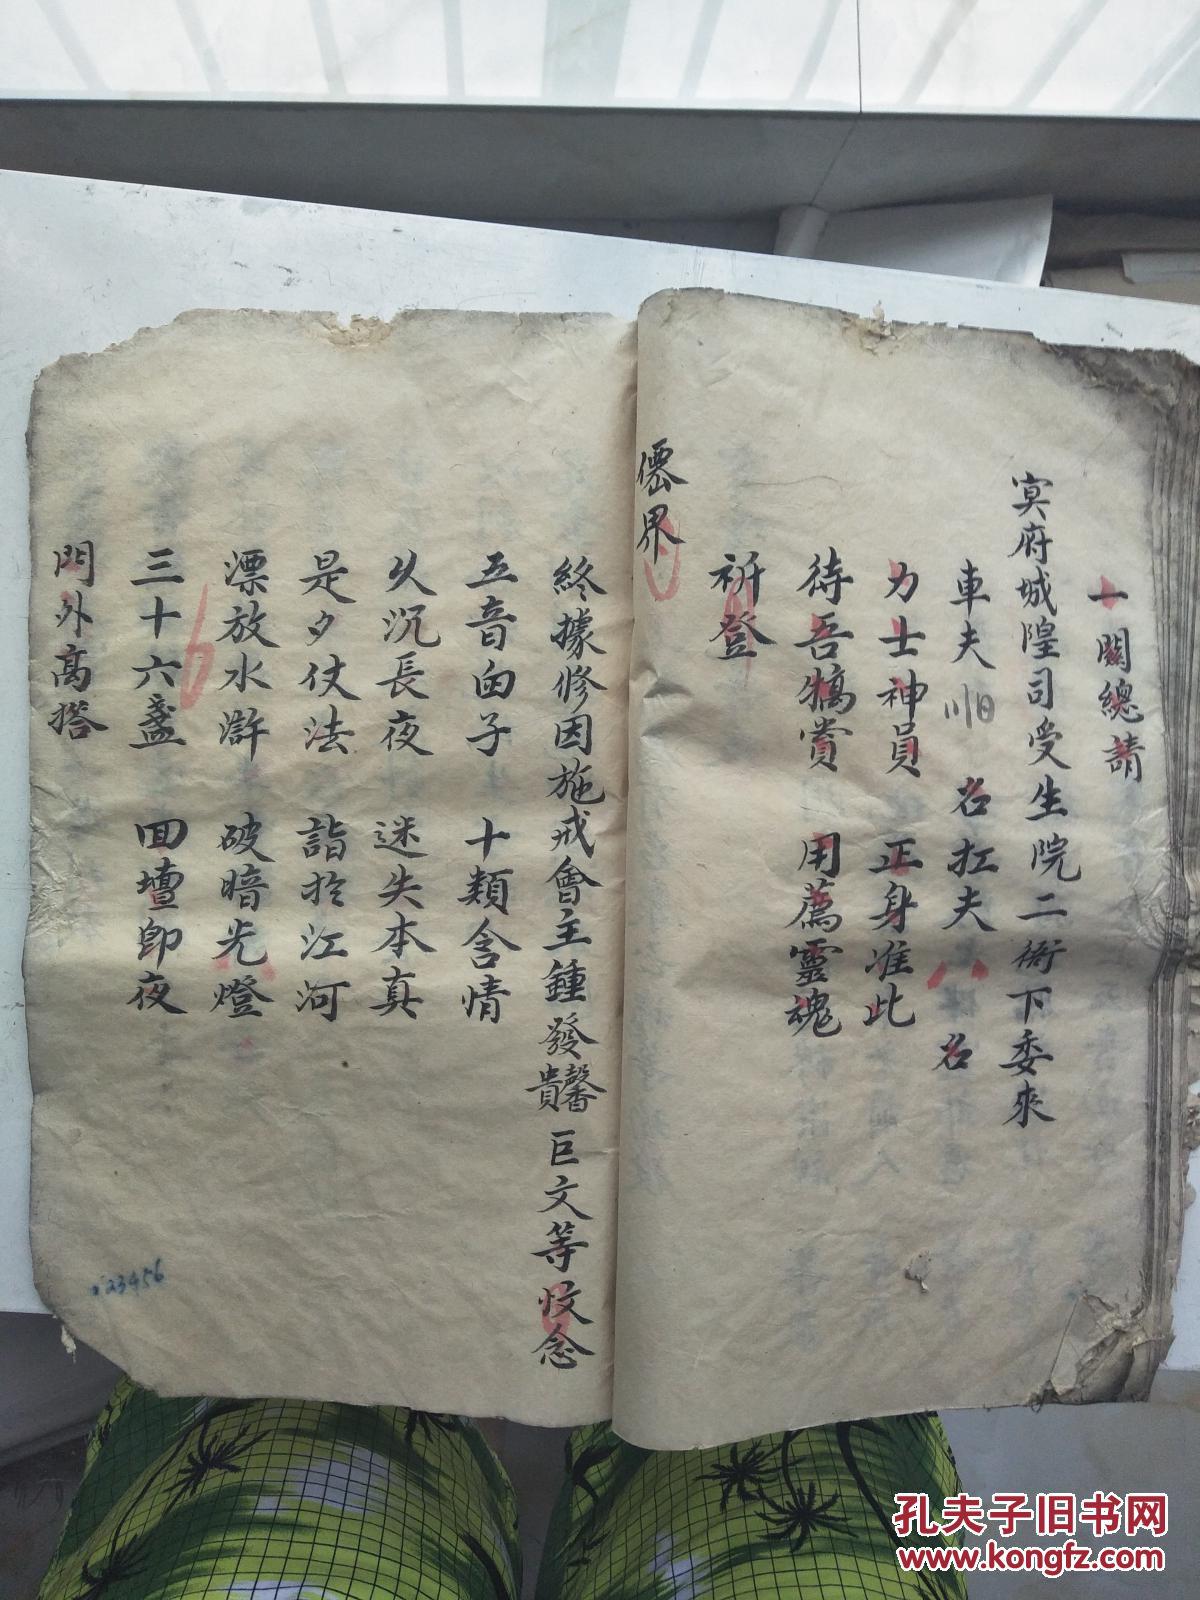 一關總請
冥府城隍司受生院二衙下委來
車夫 名扛夫 名
力士神員 正身准此
待吾犒賞 用薦靈魂
祈登
僊界
終據修因施戒會主鍾發貴馨巨文等忟念
五音向子 十類含情
久沉長夜 迷失本真
是夕仗法 詣於江河
漂放水滸 破暗光燈
三十六盞 回壇即夜
門外高搭
123456
孔夫子旧书网
www.kongfz.com